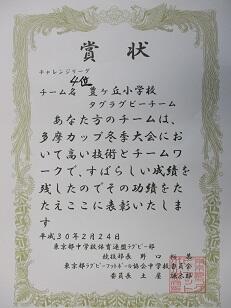 賞状
チャレンジリーグ
4位
チーム名 豊ヶ丘小学校
タグラグビーチーム
あなた方のチームは、
多摩カップ冬季大会にお
いて高い技術とチームワ
ークで、すばらしい成績を
残したのでその功績をた
たえここに表彰いたしま
す
平成30年2月24日
東京都中学校体育連盟ラグビー部
競技部長 野口
東京都ラグビーフットボール協会中学校委員会
委員長 土屋